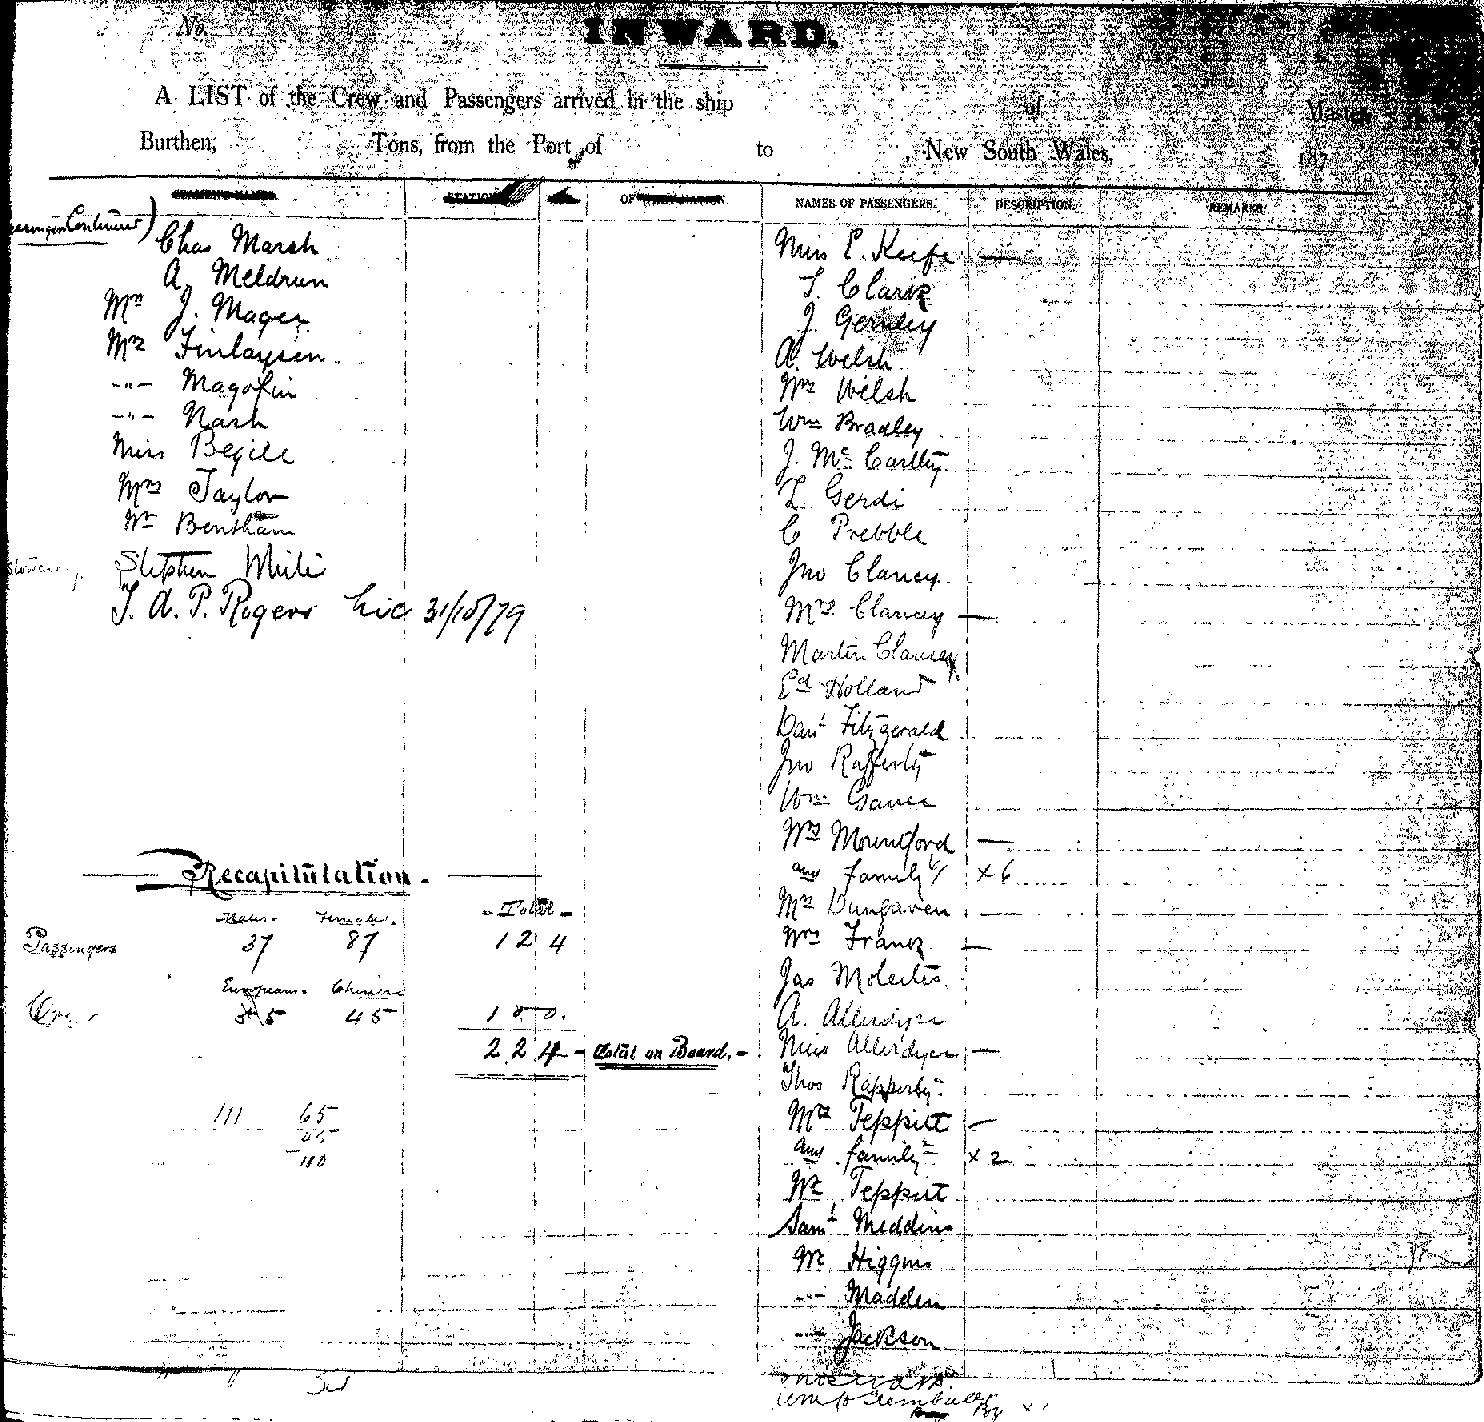 No.
INWARD.
A LIST of the Crew and Passengers arrived in the ship of Master
Burthen, Tons, from the Port of to , New South Wales, 187
STATION OF NAMES OF PASSENGERS. DESCRIPTION. REMARKS.
Continued)
Chas Marsh
A. Meldrum
Mrs J. Mager
Mr Finlaysen
-"- Magofin
-"- Nash
Miss Begile
Mrs Taylor
Mr Bentham
Stephen White
T. A. P. Rogers 31/10/79
Recapitulation.
Males. Females. - Total -
Passengers 37 87 124
European. Chinese
Crew 55 45 100.
224 - Total on Board. -
111 65
45
110
Miss E. Keefe —
T. Clark
J.
A. Welsh
Mrs Welsh
Wm Bradley
J. McCarthy
L Gerdi
C Prebble
Jno Clancy
Mrs Clancey —
Martin Clancey
Ed Holland
Danl Fitzgerald
Jno Rafferty
Wm
Mrs Mountford —
and family x 6
Mrs Dungaven —
Mrs Frank —
Jas
A. Allerdyce
Miss Allerdyce —
Thos
Mrs Teppitt —
and family x 2
Mr Teppitt
Saml Meddins
Mr Higgins
-"- Madden
-"- Jackson